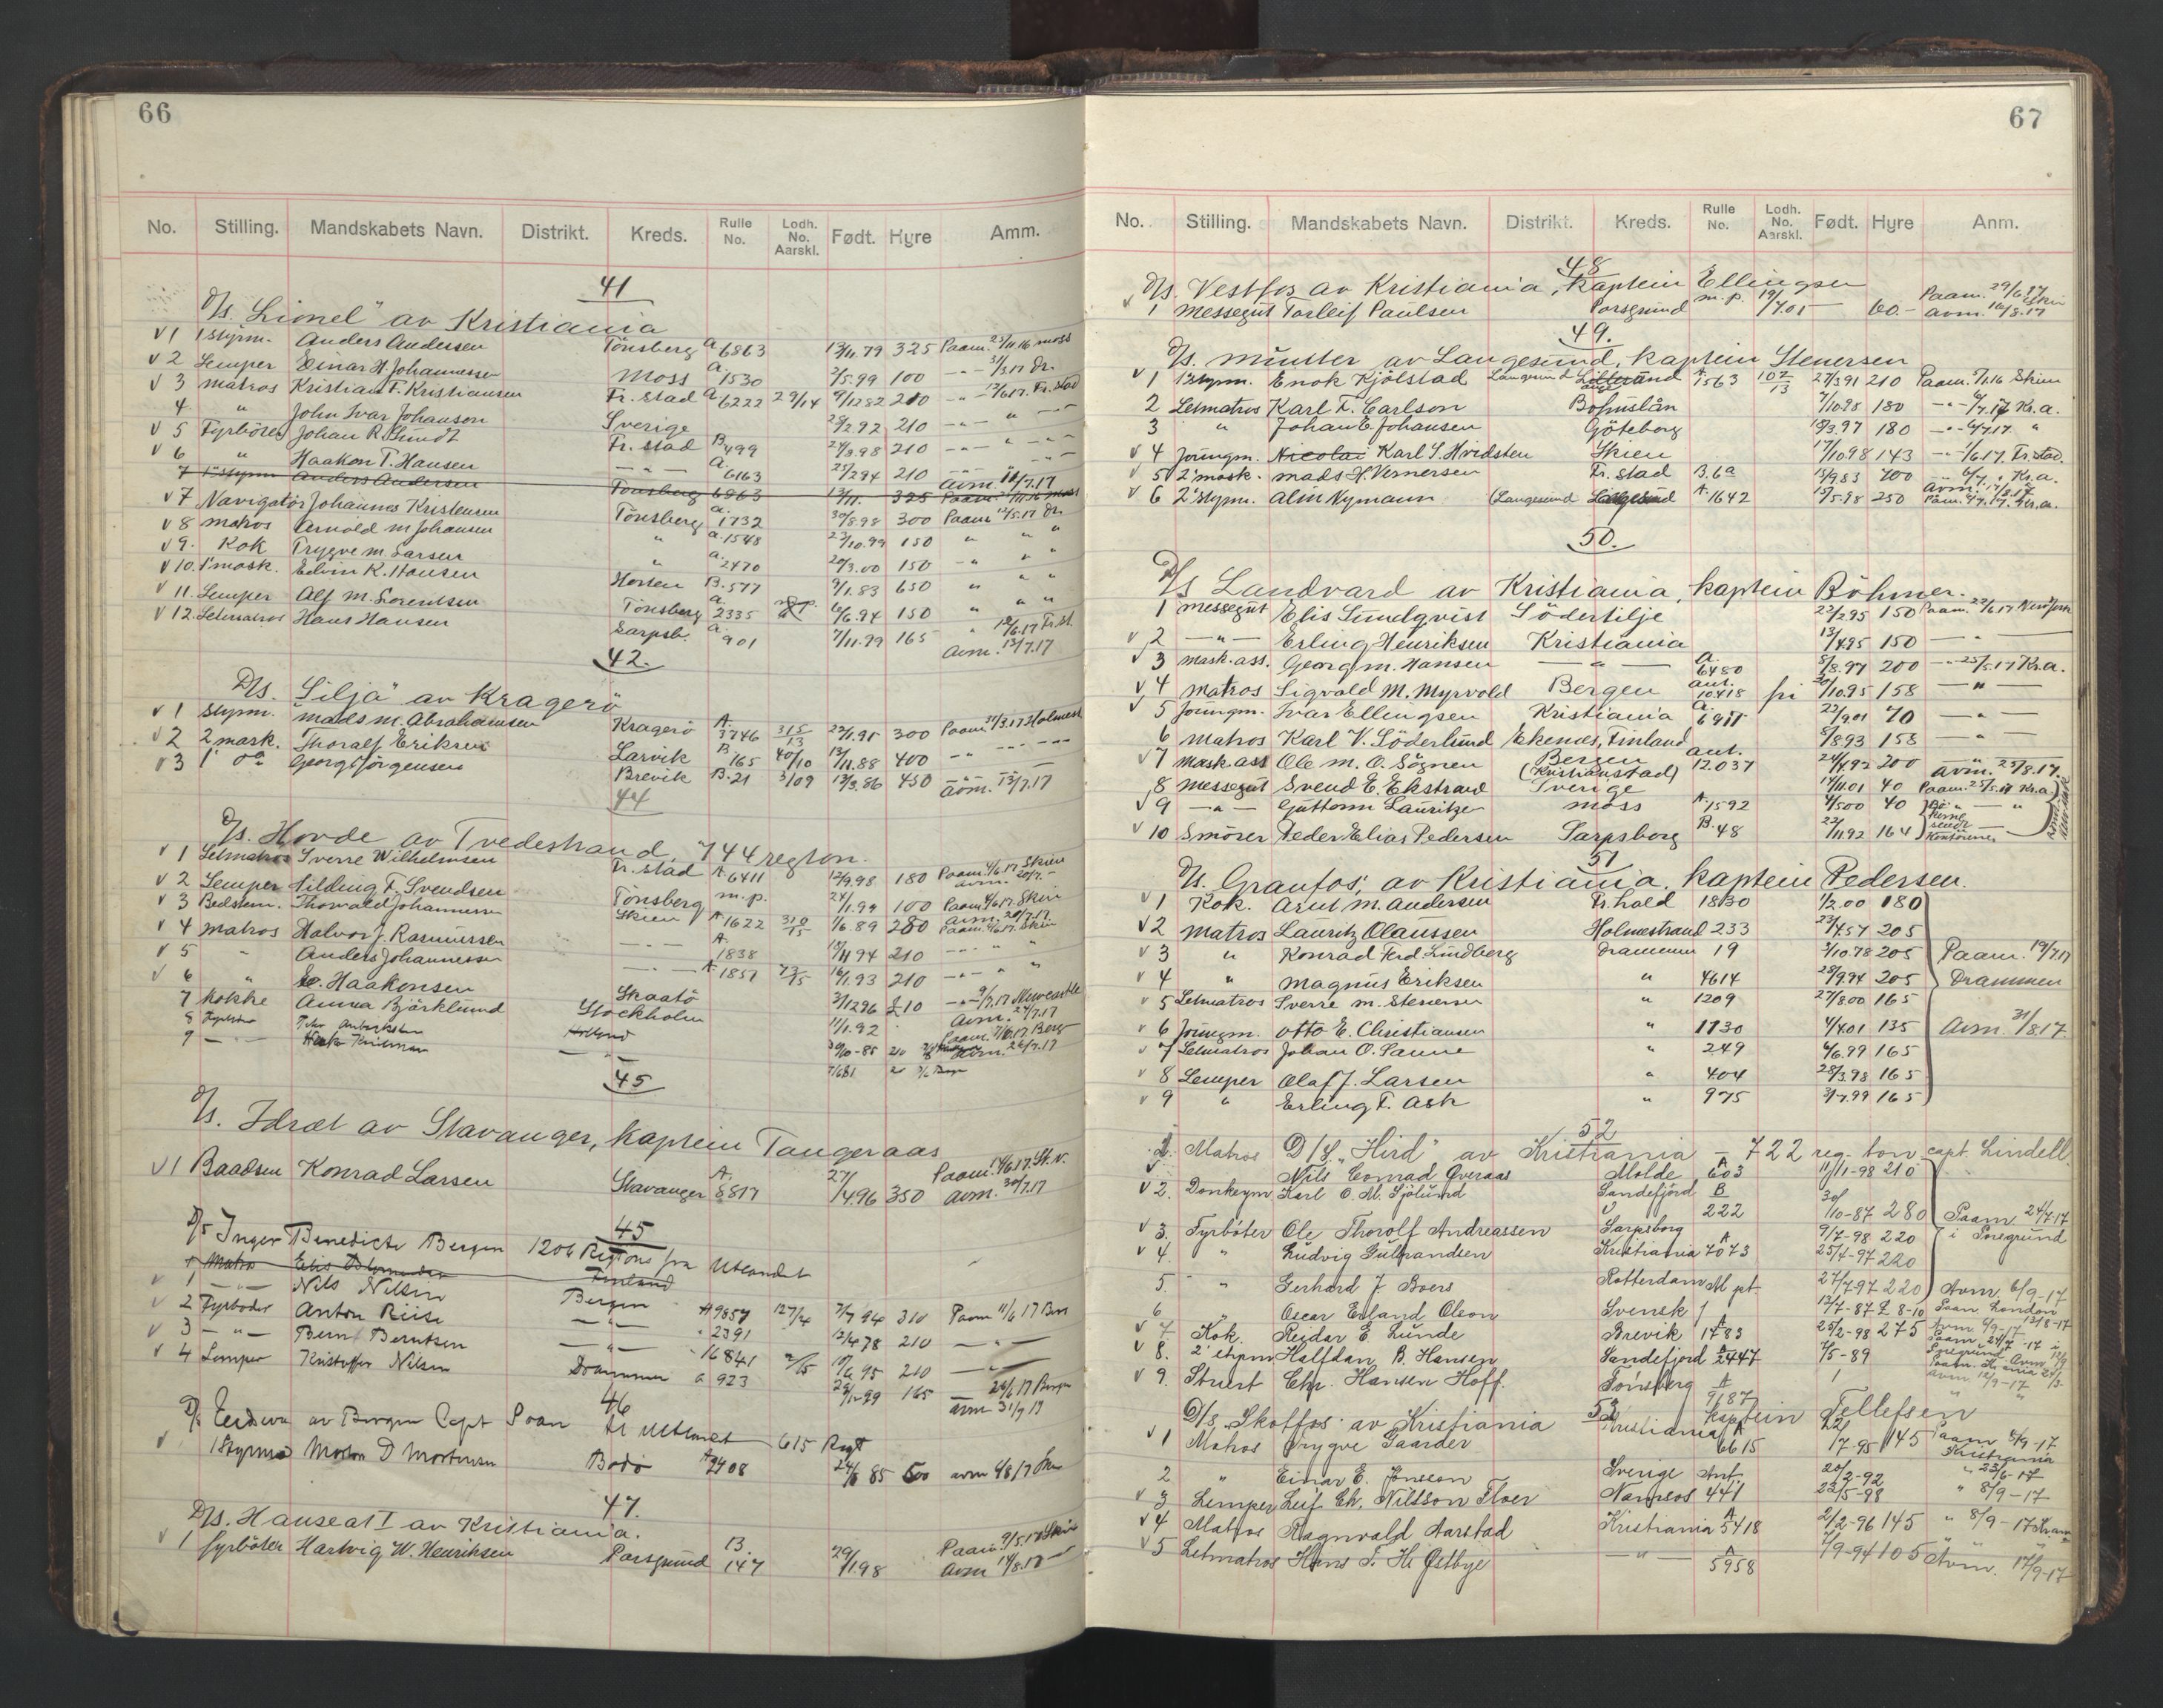 66
No. Stilling. Mandskabets Navn. Distrikt. Kreds. Rulle No. Lodh. No. Aarskl. Født. Hyre Amm.
41
D/s. "Lionel" av Kristiania
1 1 styrm. Anders Andersen Tönsberg A 6863 13/11.79 325 Paam. 23/11.16 Moss
2 Lemper Einar H. Johannessen Moss A. 1530 2/5.99 100 31/3.17 Dr.
3 Matros Kristian F. Kristiansen Fr.stad A 6222 29/14 9/12 82 210 12/6.17. Fr.stad
4 " John Ivar Johanson Sverige 28/2 92 210
5 Fyrböter Johan R. Grundt Fr. stad B 499 24/3.98 210
6 " Haakon T. Hansen A. 6163 25/2 94 210 Avm. 18/7.17
7 1 styrm Anders Andersen Tönsberg 6863 13/11. 325 Paam. 23/11.16 Moss
7 Navigatör Johannes Kristensen Tönsberg A. 1732 30/8.98 300 Paam. 12/5.17 Dr.
8 Matros Arnold M Johansen " A. 1548 23/10.99 150 " " "
9. Kok Trygve M. Larsen " A. 2470 20/3.00 150
10. 1' mask. Edvin K. Hansen Horten B. 577 9/1.83 650 " " "
11. Lemper Alf M. Lorentsen Tönsberg A. 2335 6/6.94 150 " " "
12. Letmatros Hans Hansen Sarpsb. A 901 7/11.79 165 18/6.17 Fr.st. Avm. 13/7.17
42.
D/s. "Silja" av Kragerö
1 Styrm. Mads M. Abrahamsen Kragerö A. 3746 315/13 23/1.95 300 Paam. 31/3.17 Holmest
2 2 mask. Thoralf Eriksen Larvik B. 165 40/10 13/11.88 400
3 1' do Georg Jörgensen Brevik B. 21 3/09 13/3.86 450 Avm. 13/7.17
44
D/s. Hovde av Tvedestrand, 744 regton.
1 Letmatros Sverre Wilhelmsen Fr.stad A. 6411 12/9.98 180 Paam. 4/6.17 Skien avm. 20/7.-
2 Lemper Hilding F. Svendsen Tönsberg m.p. 24/1.99 100 Paam. 4/6.17. Skien
3 Bedstem. Thorvald Johannessen Skien A 1622 310/15 1/6.89 280 Avm. 20/7.17 Paam. 4/6.17. Skien
4 Matros Halvor J. Rasmussen A. 1838 18/11 94 210
5 " Anders Johannessen A 1851 73/15 16/1.93 210
6 " E. Haakonsen Skaatö 3/12 96 £10 9/7.17 Newcastle
7 Kokke Anna Björklund Stockholm 11/1.92 Avm. 27/7.17
8 Holland 9/10-85 210
9
45
D/s. Idræt av Stavanger, kaptein Tangeraas
1 Baadsm Konrad Larsen Stavanger A. 8817 27/4 96 350 Paam. 14/6.17. St.v. Avm. 30/7.17
45
D/s Inger Benedicte Bergen 1206 Regtons fra Utlandet
1 Matro Elis Finland
1 Nils Nilsen Bergen A 9857 127/4 7/7 94 310 Paam 11/6 17 Ber
2 Fyrboder Anton Riise 2391 12/4 78 210
3 Bernt Berntsen 16841 2/15 17/6 95 210
4 Lemper Kristoffer Nilsen Drammen a 923 28/12 99 165 26/6 17 Bergen avm 31/7 17
46
D/s av Bergen Capt fr Utlandet 615 Regt
1 Styrmd Morten D Mortensen Bodö A 2408 24/8 85 500 avm 4/8 17
47.
D/s. Hanseat I av Kristiania.
1 fyrböter Hartvig W. Henriksen Porsgrund B. 147 29/1.98 Paam. 9/5.17 Skien Avm 14/8.17
67
No. Stilling. Mandskabets Navn. Distrikt. Kreds. Rulle No. Lodh. No. Aarskl. Født. Hyre Anm.
48
D/s. Vestfos av Kristiania, kaptein Ellingsen
1 Messegut Torleif Paulsen Porsgrund m.p. 19/7.01 60.- Paam. 29/6.17 Skien Avm. 16/8.17
49.
D/s. Munter av Langesund, kaptein Stenersen
1 1 styrm. Enok Kjölstad Langesund A. 1563 102/13 27/3 91 210 Paam. 5/1.16 Skien
2 Letmatros Karl F. Carlson Bohuslän 7/10.98 180 6/7.17 Kr.a.
3 " Johan E. Johansen Göteborg 18/3.97 180 6/7.17. "
4 Joungm. Nicolai Karl S. Hvidsten Skien 17/10.98 143 1/6.17. Fr.stad.
5 2' mask. Mads H. Vernersen Fr. stad B. 6a 15/9.83 400 6/7. " Kr.a.
6 2' styrm. Alm Nymann (Langesund Langesund A. 1642 19/5.98 250 Paam. 4/7.17. Kr.a.
50.
D/s Landvard av Kristiania, kaptein Böhmer.
1 Messegut Elis Sundqvist Södertilje 22/2 95 150 Paam. 22/6.17 New York
2 Erling Henriksen Kristiania 13/4 95 150
3 Mask. ass. Georg M. Hansen A. 6480 5/8.97 200 25/5.17 Kr.a.
4 Matros Sigvald M. Myrvold Bergen ant. 10418 fri 30/10.95 158
5 Joungm. Ivar Ellingsen Kristiania A. 6911 22/9.01 70
6 Matros Karl V. Söderlund Ekenæs, Finland 8/8 93 158
7 Mask ass Ole M. O. Sögnen Bergen ant. 12.037 24/4.92 200 Avm. 25/8.17.
8 Messegut Svend E. Ekstrand (Kristianstad) Sverige 14/11.01 40 Paam. 25/5.17 Kr.a.
9 Guttorm Lauritze Moss A. 1592 4/5 00 40
10 Smörer Peder Elias Pedersen Sarpsborg B. 48 23/11.92 164
51
D/s. Granfos, av Kristiania, kaptein Pedersen.
1 Kok. Arnt M. Andersen Fr.hald 1830 1/2.00 180
2 Matros Lauritz Olaussen Holmestrand 233 23/4.57 205
3 " Konrad Ferd Lindberg Drammen 19 3/10.78 205 Paam. 19/7.17
4 " Magnus Eriksen " 4614 28/9.94 205 Drammen
5 Letmatros Sverre M. Stenersen " 1209 27/8.00 165
6 Joungm. Otto E. Christiansen " 1730 4/4.01 135 Avm. 31/8.17.
7 Letmatros Johan O. Sanne " 249 6/6.99 165
8 Lemper Olaf J. Larsen " 404 28/3.98 165
9 " Erling F. Ask " 975 3/7.99 165
52
D/S "Hird" av Kristiania - 722 reg. ton capt. Lindell.
1. Matros Nils Conrad Överaas Molde A 603 11/11-98 210
2. Donkeym Karl O. M. Sjölund Sandefjord B 222 30/10-87 280 Paam 24/7-17
3. Fyrböter Ole Thorolf Andreassen Sarpsborg 9/7-98 220 i Porsgrund
4. " Ludvig Gulbrandsen Kristiania A 7073 25/4-97 220
5. " Gerhard J Boers Rotterdam M.pt. 27/7-97 220 Avm. 6/9-17
6 " Oscar Erland Olson Svensk 13/7-87 £ 8-10 Paam. London 13/8-17
7 Kok. Reidar E Lunde Brevik A 1783 25/2-98 275 Avm 6/9-17
8. 2' styrm Halfdan B. Hansen Sandefjord A 2447 7/5-89
9. Stuert Chr. Hansen Hoff. Tönsberg A 9187
53
D/s "Skotfos" av Kristiania kaptein Tellefsen
1 Matros Trygve Gaarder Kristiania A 6615 22/7-95 145 Paam 8/9-17 Kristiania
2 " Einar E. Jonsson Sverige Ant. 20/2-92 " 23/6-17
3 Lemper Leif Ch. Nilsson Floer Namsos 441 23/5-98 " 8/9-17
4 Matros Ragnvald Aarstad Kristiania A 5418 2/2-96 145 " 8/9-17
5 Letmatros Hans F. H. Østbye A 5958 7/9-94 105 Avm. 17/9-17